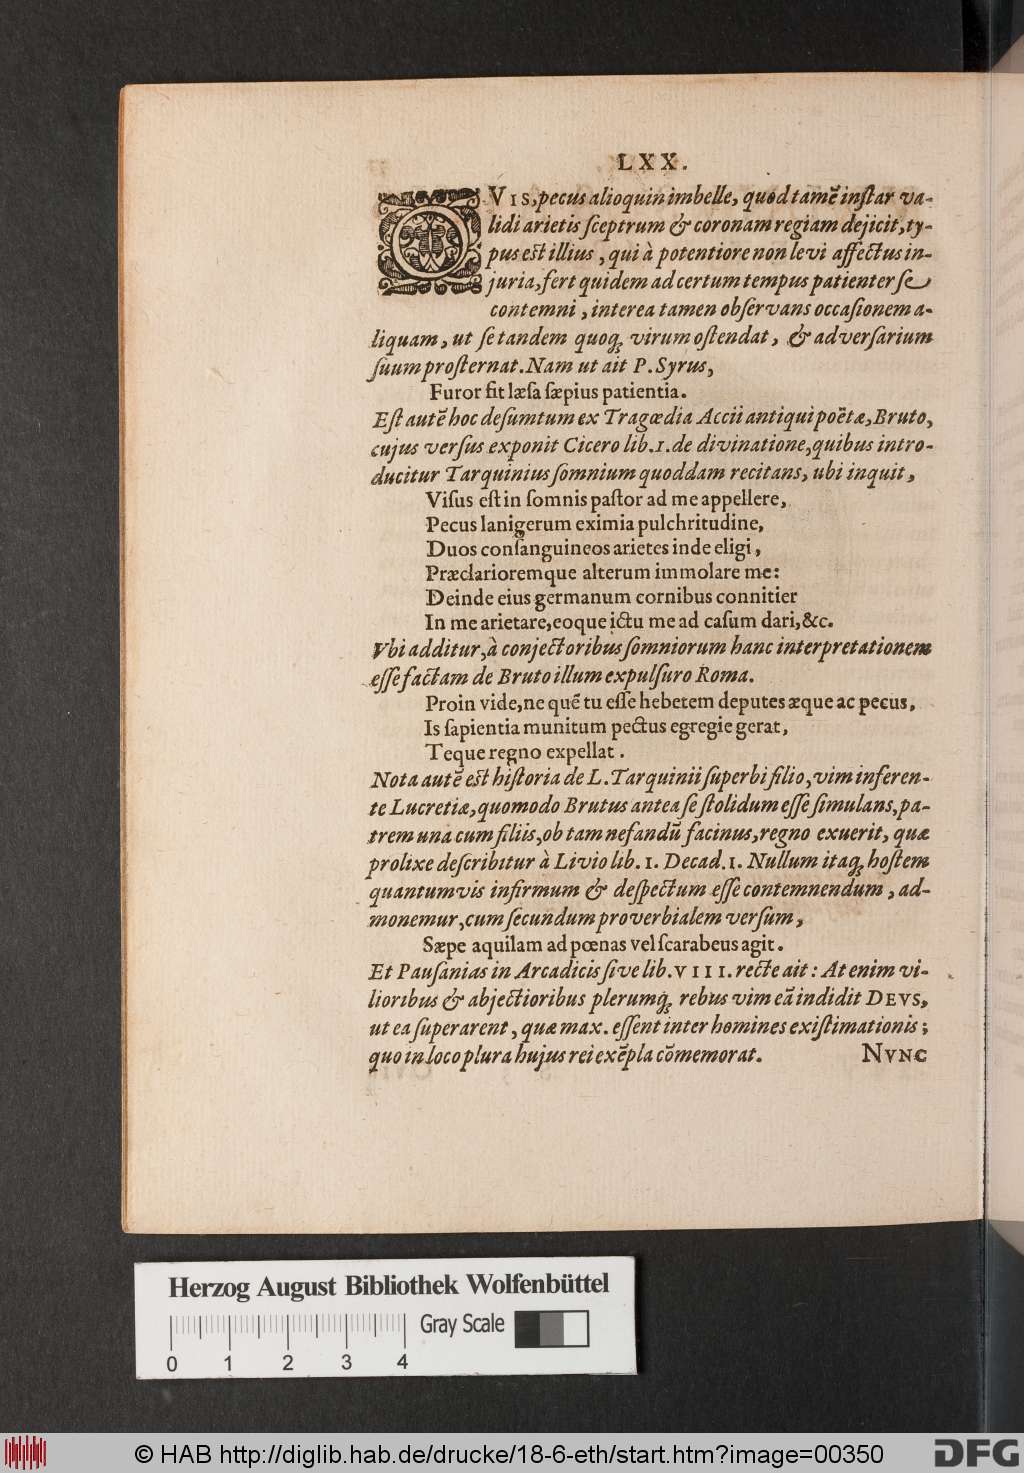 LXX.
OVIS, pecus alioquin imbelle, quod tamē inſtar va-
lidi arietis ſceptrum & coronam regiam dejicit, ty-
pus eſt illius, qui à potentiore non levi affectus in-
juria, fert quidem ad certum tempus patienter ſe
contemni, interea tamen obſervans occaſionem a-
liquam, ut ſe tandem quoq; virum oſtendat, & adverſarium
ſuum proſternat. Nam ut ait P. Syrus,
Furor fit læſa ſæpius patientia.
Eſt autē hoc deſumtum ex Tragœdia Accii antiqui poëtæ, Bruto,
cujus verſus exponit Cicero lib. 1. de divinatione, quibus intro-
ducitur Tarquinius ſomnium quoddam recitans, ubi inquit,
Viſus eſt in ſomnis paſtor ad me appellere,
Pecus lanigerum eximia pulchritudine,
Duos conſanguineos arietes inde eligi,
Præclarioremque alterum immolare me:
Deinde eius germanum cornibus connitier
In me arietare, eoque ictu me ad caſum dari, &c.
Vbi additur, à conjectoribus ſomniorum hanc interpretationem
eſſe factam de Bruto illum expulſuro Roma.
Proin vide, ne quē tu eſſe hebetem deputes æque ac pecus,
Is ſapientia munitum pectus egregie gerat,
Teque regno expellat.
Nota autē eſt hiſtoria de L. Tarquinii ſuperbi filio, vim inferen-
te Lucretiæ, quomodo Brutus antea ſe ſtolidum eſſe ſimulans, pa-
trem una cum filiis, ob tam nefandū facinus, regno exuerit, quæ
prolixe deſcribitur à Livio lib. 1. Decad. 1. Nullum itaq; hoſtem
quantumvis infirmum & deſpectum eſſe contemnendum, ad-
monemur, cum ſecundum proverbialem verſum,
Sæpe aquilam ad pœnas vel ſcarabeus agit.
Et Pauſanias in Arcadicis ſive lib. VIII. recte ait: At enim vi-
lioribus & abjectioribus plerumq; rebus vim eā indidit DEVS,
ut ea ſuperarent, quæ max. eſſent inter homines exiſtimationis;
quo in loco plura hujus rei exēpla cōmemorat. NVNC
Herzog August Bibliothek Wolfenbüttel
Gray Scale
0 1 2 3 4
© HAB http://diglib.hab.de/drucke/18-6-eth/start.htm?image=00350
DFG